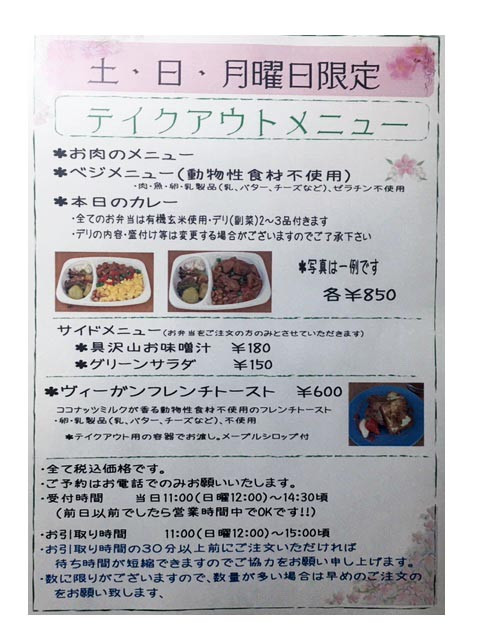 土・日・月曜日限定
テイクアウトメニュー
✱お肉のメニュー
✱ベジメニュー(動物性食材不使用)
・肉・魚・卵・乳製品(乳、バター、チーズなど)、ゼラチン不使用
✱本日のカレー
・全てのお弁当は有機玄米使用・デリ(副菜)2〜3品付きます
・デリの内容・盛付け等は変更する場合がございますのでご了承下さい
✱写真は一例です
各￥850
サイドメニュー(お弁当をご注文の方のみとさせていただきます)
✱具沢山お味噌汁 ￥180
✱グリーンサラダ ￥150
✱ヴィーガンフレンチトースト ￥600
ココナッツミルクが香る動物性食材不使用のフレンチトースト
・卵・乳製品(乳、バター、チーズなど)、不使用
✱テイクアウト用の容器でお渡し。メープルシロップ付
・全て税込価格です。
・ご予約はお電話でのみお願いいたします。
・受付時間 当日11:00(日曜12:00)〜14:30頃
(前日以前でしたら営業時間中でOKです!!)
・お引取り時間 11:00(日曜12:00)〜15:00頃
・お引取り時間の30分以上前にご注文いただければ
待ち時間が短縮できますのでご協力をお願い申し上げます。
・数に限りがございますので、数量が多い場合は早めのご注文の
をお願い致します、